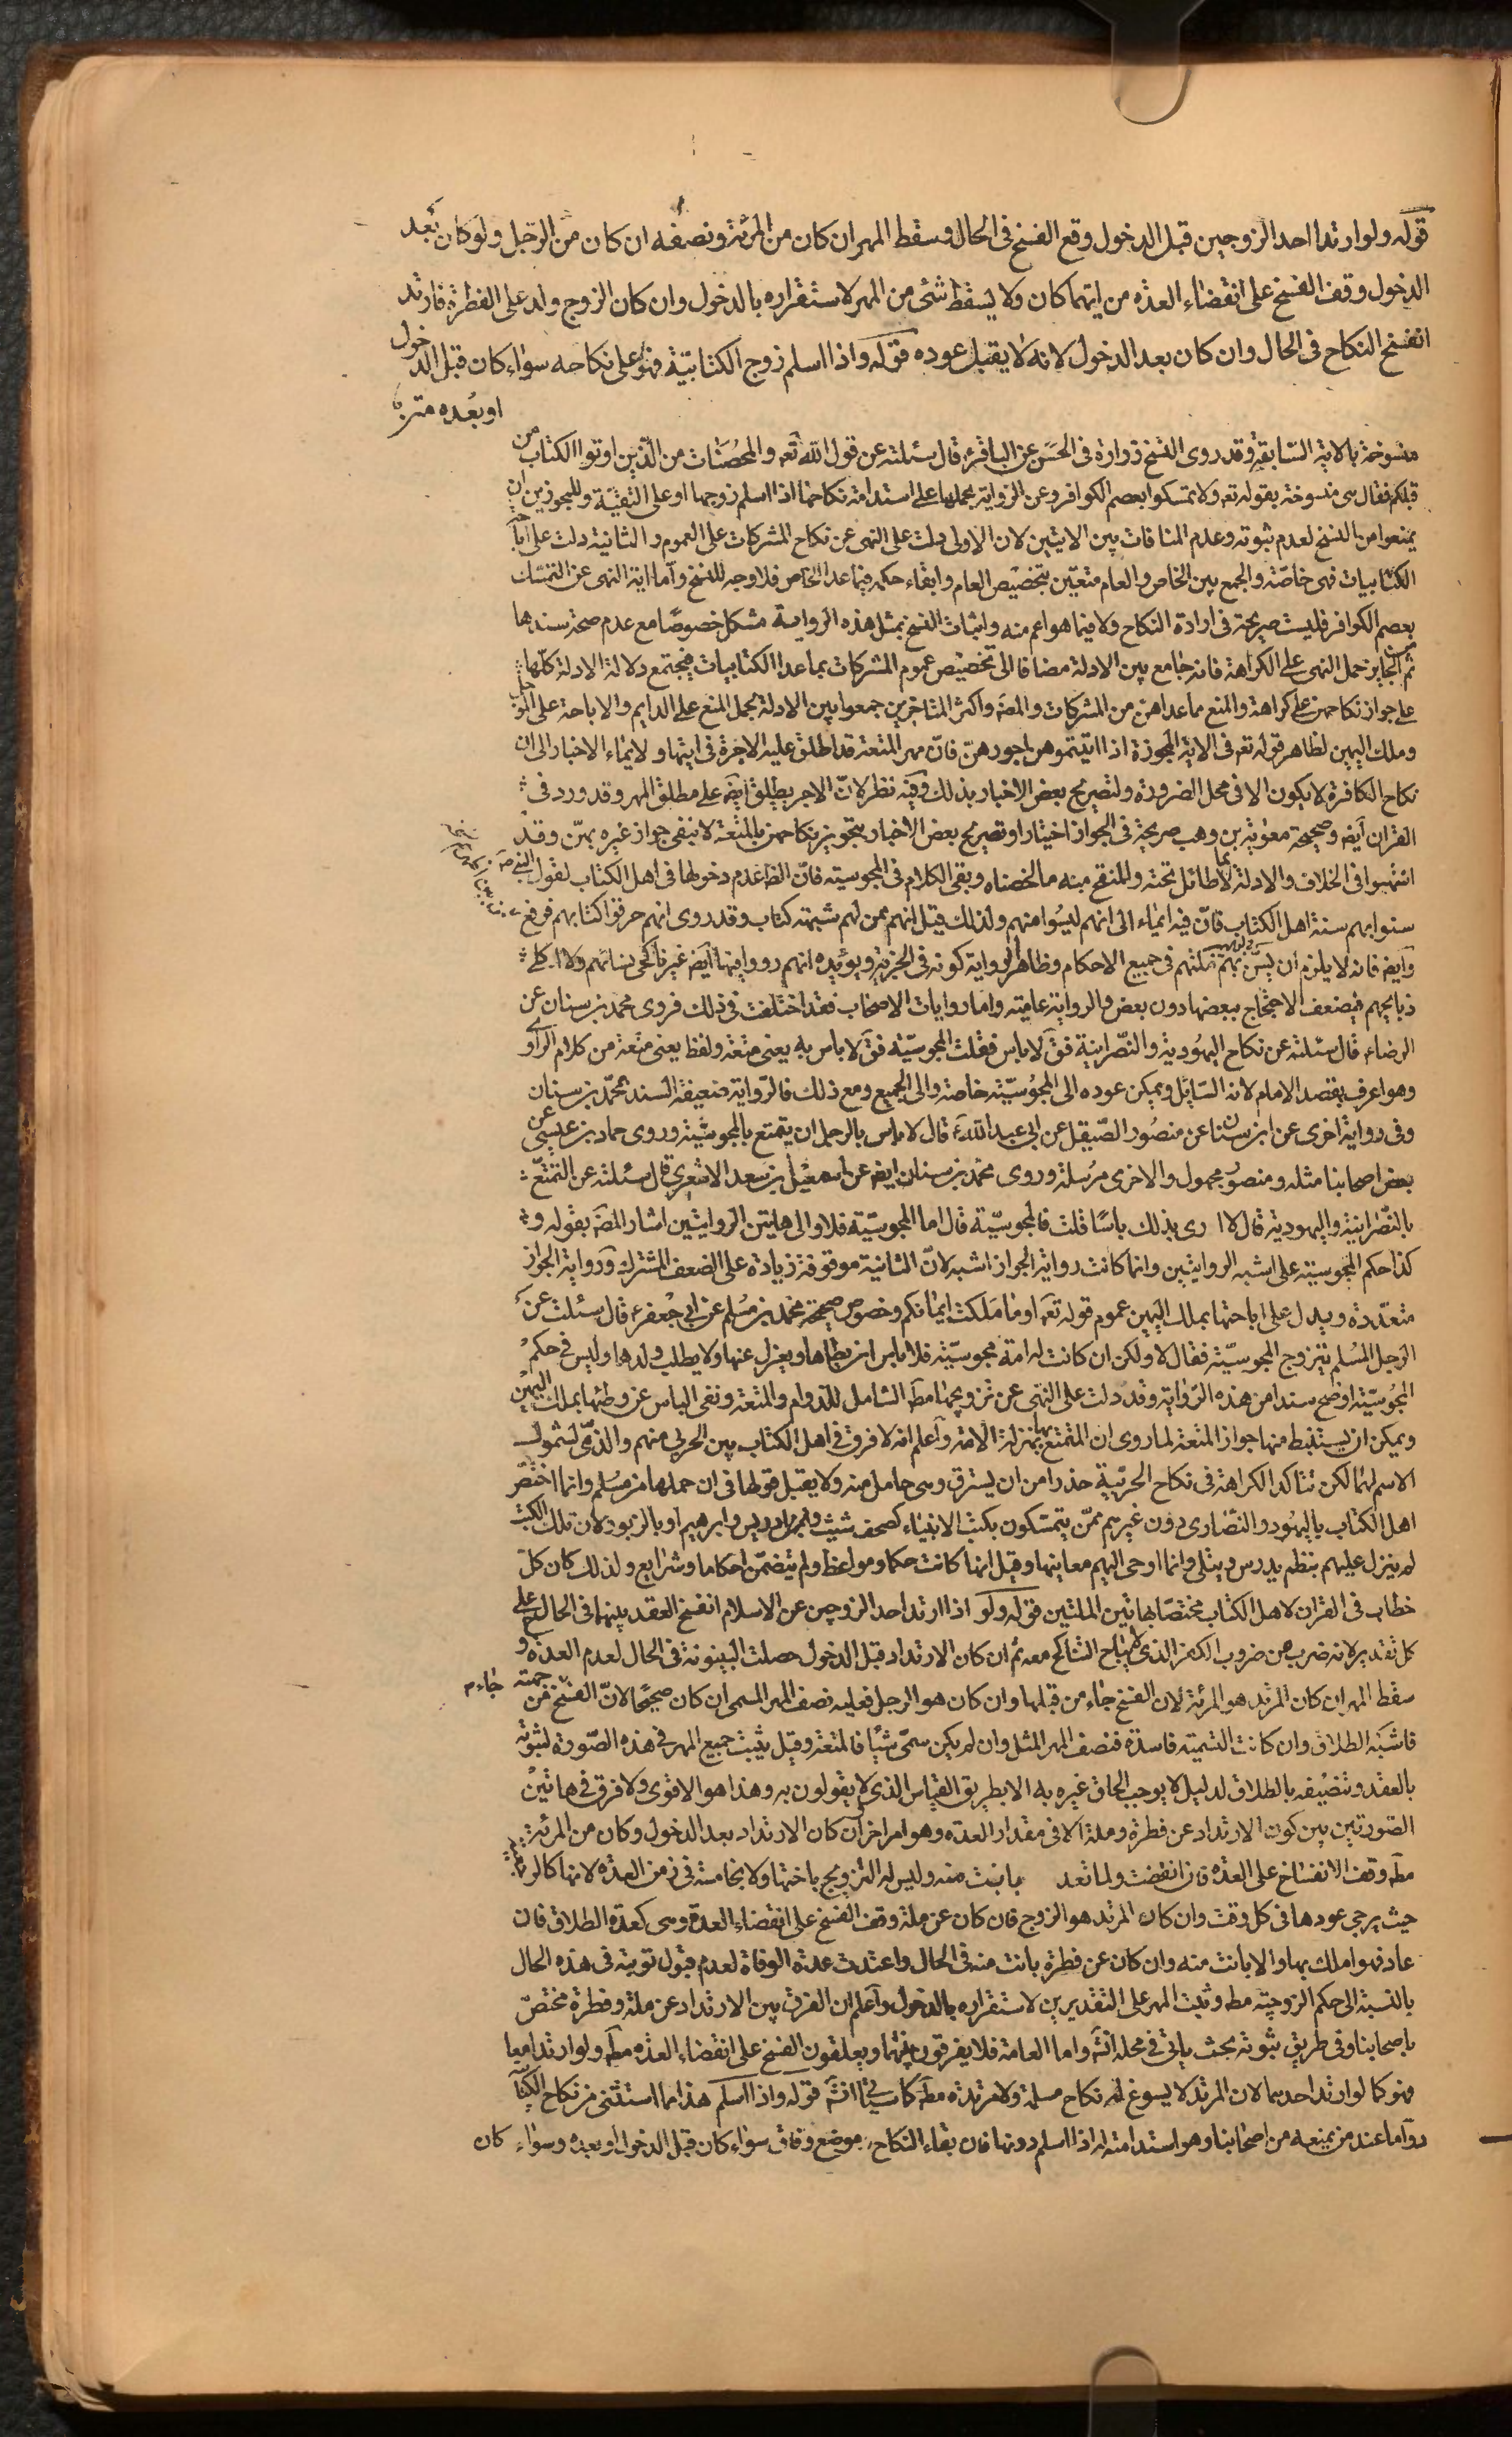 قوله ولو ارتد احد الزوجين قبل الدخول وقع الفسخ فى الحال وسقط المهر ان كان من المرئة ونصفه ان كان من الرجل ولو كان بعد
الدخول وقف الفسخ على انقضاء العدة من ايتهما كان ولا يسقط شئ من المهر لاستقراره بالدخول وان كان الزوج ولد على الفطرة فارتد
انفسخ النكاح فى الحال وان كان بعد الدخول لانه لا يقبل عوده قوله واذا اسلم زوج الكتابية فهو على نكاحه سواء كان قبل الدخول
او بعده
منسوخة بالاية السابقة وقد روى الشيخ زرارة فى الحسن عن الباقرء قال سئلته عن قول الله تعه والمحصنات من الذين اوتوا الكتاب من
قبلكم فقال هى منسوخة بقوله تعه ولا تمسكوا بعصم الكوافر وعن الرواية بحملها على استدامة نكاحها اذا اسلم زوجها او على التقية وللمجوزين ان
يمنعوا من النسخ لعدم ثبوته وعدم المنافات بين الايتين لان الاولى دلت على النهى عن نكاح المشركات على العموم والثانية دلت على اباحة
الكتابيات فهى خاصة والجمع بين الخاص والعام متعين بتخصيص العام وابقاء حكمه فيما عدا الخاص فلا وجه للنسخ واما اية النهى عن التمسك
بعصم الكوافر فليست صريحة فى ارادة النكاح ولا فيما هو اعم منه واثبات النسخ بمثل هذه الرواية مشكل خصوصا مع عدم صحة سندها
ثم الجايز حمل النهى على الكراهة فانه جامع بين الادلة مضافا الى تخصيص عموم المشركات بما عدا الكتابيات فيجتمع دلالة الادلة كلها
على جواز نكاحهن على كراهة والمنع مما عداهن من المشركات والمصه واكثر المتاخرين جمعوا بين الادلة بحمل المنع على الدايم والاباحة على الموجل
وملك اليمين لظاهر قوله تعه فى الاية المجوزة اذا اتيتموهن اجورهن فان مهر المتعة قد اطلق عليه الاجرة فى ايتها ولايماء الاخبار الى ان
نكاح الكافرة لا يكون الا فى محل الضرورة ولتصريح بعض الاخبار بذلك وفيه نظر لان الاجر يطلق ايضه على مطلق المهر وقد ورد فى
القران ايضه وصحيحة معوية بن وهب صريحة فى الجواز اختيارا وتصريح بعض الاخبار بتجويز نكاحهن بالمتعة لا ينفى جواز غيره بهن وقد
انتهوا فى الخلاف والادلة بما لا طائل تحته والمنقح منه ما لخصناه وبقى الكلام فى المجوسية فان الظا عدم دخولها فى اهل الكتاب لقول النبى صه
سنوا بهم سنة اهل الكتاب فان فيه ايماء الى انهم ليسوا منهم ولذلك قيل انهم ممن لهم شبهة كتاب وقد روى انهم حرقوا كتابهم فرفع
وايضه فانه لا يلزم ان يسن بهم سنتهم فى جميع الاحكام وظاهر الرواية كونه فى الجزية ويؤيده انهم رووا فيها ايضه غير ناكحى نسائهم ولا اكلى
ذبايحهم فيضعف الاحتجاج ببعضها دون بعض والرواية عامية واما روايات الاصحاب فقد اختلفت فى ذلك فروى محمد بن سنان عن
الرضاء قال سئلته عن نكاح اليهودية والنصرانية فق لا باس فقلت المجوسية فق لا باس به يعنى متعة ولفظ يعنى متعة من كلام الراوى
وهو اعرف بقصد الامام لانه السائل ويمكن عوده الى المجوسية خاصة والى الجميع ومع ذلك فالرواية ضعيفة السند بمحمد بن سنان
وفى رواية اخرى عن ابن سنان عن منصور الصيقل عن ابى عبد اللهء قال لا باس بالرجل ان يتمتع بالمجوسية وروى حماد بن عيسى عن
بعض اصحابنا مثله ومنصور مجهول والاخرى مرسلة وروى محمد بن سنان ايضه عن اسمعيل بن سعد الاشعرى قال سئلته عن التمتع
بالنصرانية واليهودية قال لا ارى بذلك باسا قلت فالمجوسية قال اما المجوسية فلا والى هاتين الروايتين اشار المصه بقوله و
كذا حكم المجوسية على اشبه الروايتين وانما كانت رواية الجواز اشبه لان الثانية موقوفة زيادة على الضعف المشترك ورواية الجواز
متعددة ويدل على اباحتها بملك اليمين عموم قوله تعه او ما ملكت ايمانكم وخصوص صحيحة محمد بن مسلم عن ابى جعفرء قال سئلت عن
الرجل المسلم يتزوج المجوسية فقال لا ولكن ان كانت له امة مجوسية فلا باس ان يطاها ويعزل عنها ولا يطلب ولدها وليس فى حكم
المجوسية اوضح سندا من هذه الرواية وقد دلت على النهى عن تزويجها مطه الشامل للدوام والمتعة ونفى الباس عن وطئها بملك اليمين
ويمكن ان يستنبط منها جواز المتعة لما روى ان المتمتع بها بمنزلة الامة واعلم انه لا فرق فى اهل الكتاب بين الحربى منهم والذمى لشمول
الاسم لهما لكن تتاكد الكراهة فى نكاح الحربية حذرا من ان يسترق وهى حامل منه ولا يقبل قولها فى ان حملها من مسلم وانما اختصر
اهل الكتاب باليهود والنصارى دون غيرهم ممن يتمسكون بكتب الانبياء كصحف شيث وادريس وابرهيم او بالزبور لان تلك الكتب
لم ينزل عليهم بنظم يدرس ويتلى وانما اوحى اليهم معانيها وقيل انها كانت حكما ومواعظ ولم تتضمن احكاما وشرايع ولذلك كان كل
خطاب فى القران لاهل الكتاب مختصا بهاتين الملتين قوله ولو اذا ارتد احد الزوجين عن الاسلام انفسخ العقد بينهما فى الحال على
كل تقدير لانه ضرب من ضروب الكفر الذى لا يباح التناكح معه ثم ان كان الارتداد قبل الدخول حصلت البينونة فى الحال لعدم العدة و
سقط المهر ان كان المرتد هو المرئة لان الفسخ جاء من قبلها وان كان هو الرجل فعليه نصف المهر المسمى ان كان صحيحا لان الفسخ من جهته جاء
فاشبه الطلاق وان كانت التسمية فاسدة فنصف المهر المثل وان لم يكن سمى شيئا فالمتعة وقيل يثبت جميع المهر فى هذه الصورة لثبوته
بالعقد وتنصيفه بالطلاق لدليل لا يوجب الحاق غيره به الا بطريق القياس الذى لا يقولون به وهذا هو الاقوى ولا فرق فى هاتين
الصورتين بين كون الارتداد عن فطرة وملة الا فى مقدار العدة وهو امر اخر وان كان الارتداد بعد الدخول وكان من المرئة
مطه وقف الانفساخ على العدة فان انقضت ولما تعد بانت منه وليس له التزويج باختها ولا بخامسة فى زمن العدة لانها كالرجعية
حيث يرجى عودها فى كل وقت وان كان المرتد هو الزوج فان كان عن ملة وقف الفسخ على انقضاء العدة وهى كعدة الطلاق فان
عاد فهو املك بها والا بانت منه وان كان عن فطرة بانت منه فى الحال واعتدت عدة الوفاة لعدم قبول توبته فى هذه الحال
بالنسبة الى حكم الزوجية مطه وثبت المهر على التقديرين لاستقراره بالدخول واعلم ان الفرق بين الارتداد عن ملة وفطرة مختص
باصحابنا وفى طريق ثبوته بحث ياتى فى محله انشه واما العامة فلا يفرقون بينهما ويعلقون الفسخ على انقضاء العدة مطه ولو ارتدا معا
فهو كما لو ارتد احدهما لان المرتد لا يسوغ له نكاح مسلمة ولا مرتدة مطه كما سياتى انشه قوله واذا اسلم هذا مما استثنى من نكاح الكتابية
دواما عند من يمنعه من اصحابنا وهو استدامته له اذا اسلم دونها فان بقاء النكاح موضع وفاق سواء كان قبل الدخول او بعده وسواء كان